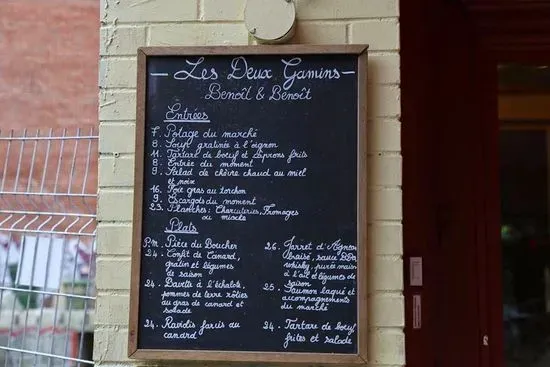 Les Deux Gamins
Benoît & Benoît
Entrées
7. Potage du marché
8. Soup gratinée à l'oignon
11. Tartare de bœuf et câprons frits
8. Entrée du moment
9. Salad de chèvre chaud au miel
et noix
16. Foie gras au torchon
9. Escargots du moment
23. Planches: Charcuteries, Fromages
ou mixte
Plats
P.M. Pièce du Boucher
24. Confit de Canard,
gratin et légumes
de saison
24. Bavette à l'échalote,
pommes de terre rôties
au gras de canard et
salade
24. Raviolis farcis au
canard
26. Jarret d'Agneau
braisé, sauce BBQ
whisky, purée maison
à l'ail et légumes de
saison
25. Saumon laqué et
accompagnements
du marché
24. Tartare de bœuf
frites et salade